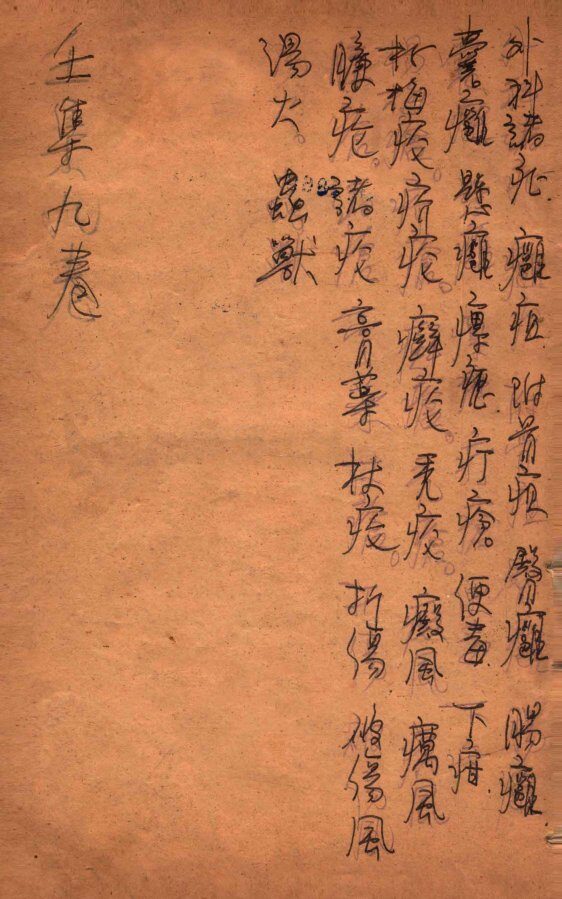 外科諸症 癰疽 附骨疽 臀癰 腸癰
囊癰 懸癰 瘰癧 疔瘡。便毒 下疳
楊梅瘡。疥瘡。癬瘡。禿瘡 癜風 癘風
臁瘡。諸瘡 膏藥 杖瘡。折傷 破傷風
湯火。蟲獸
壬集九卷